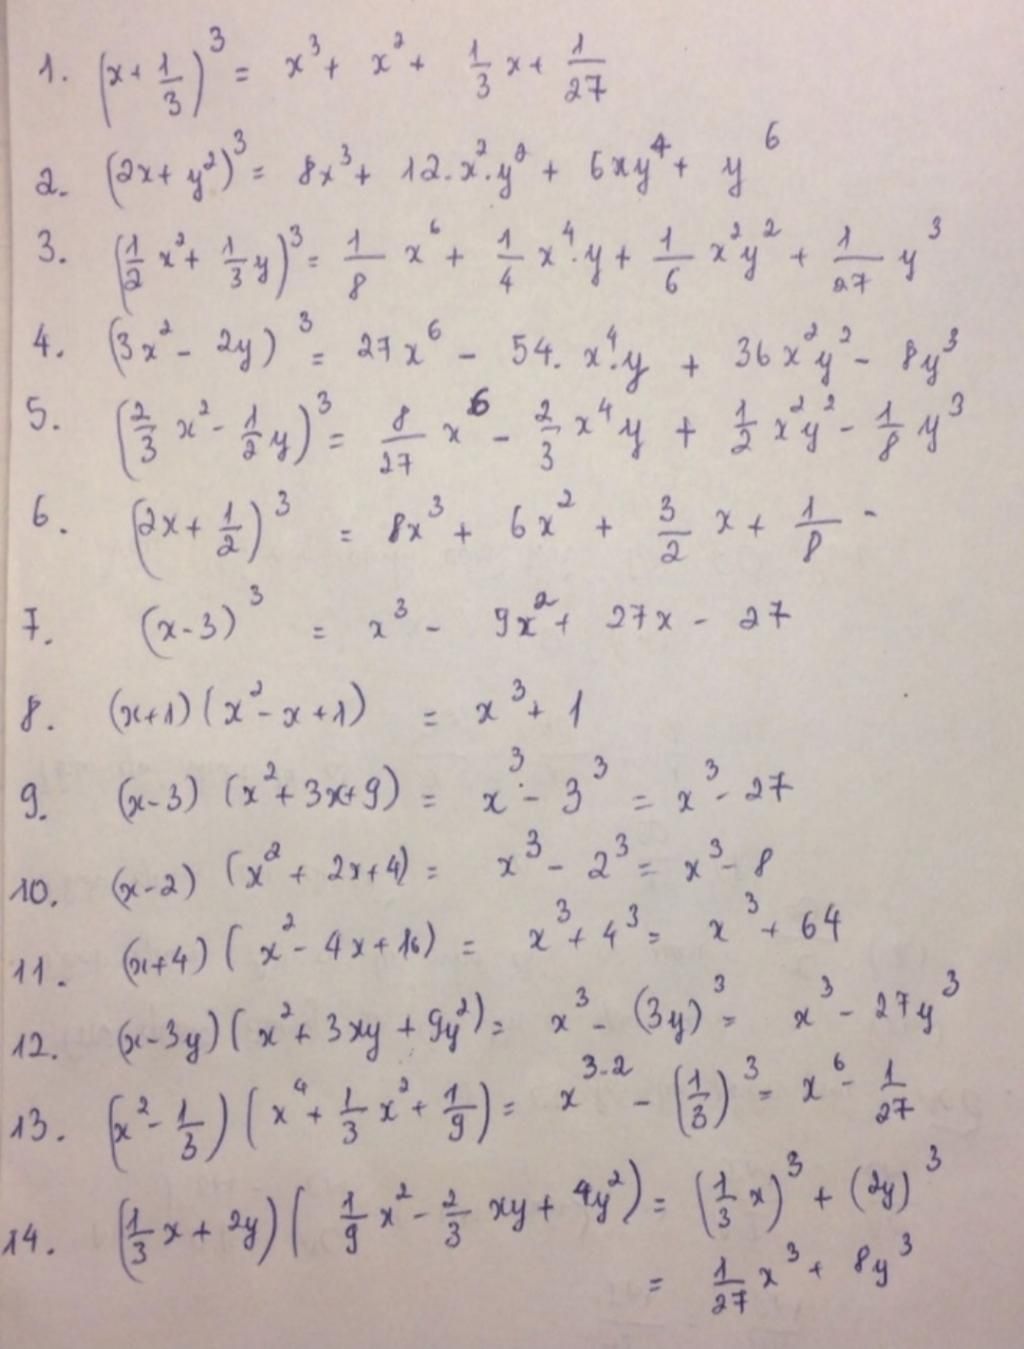 1. (x + 1/3)³ = x³ + x² + 1/3 x + 1/27
2. (2x + y²)³ = 8x³ + 12.x².y² + 6xy⁴ + y⁶
3. (1/2 x² + 1/3 y)³ = 1/8 x⁶ + 1/4 x⁴.y + 1/6 x²y² + 1/27 y³
4. (3x² - 2y)³ = 27x⁶ - 54. x⁴.y + 36x²y² - 8y³
5. (2/3 x² - 1/2 y)³ = 8/27 x⁶ - 2/3 x⁴y + 1/2 x²y² - 1/8 y³
6. (2x + 1/2)³ = 8x³ + 6x² + 3/2 x + 1/8 -
7. (x-3)³ = x³ - 9x² + 27x - 27
8. (x+1)(x² - x + 1) = x³ + 1
9. (x-3) (x² + 3x+9) = x³ - 3³ = x³ - 27
10. (x-2) (x² + 2x+4) = x³ - 2³ = x³ - 8
11. (x+4) (x² - 4x + 16) = x³ + 4³ = x³ + 64
12. (x-3y)(x² + 3xy + 9y²) = x³ - (3y)³ = x³ - 27y³
13. (x² - 1/3) (x⁴ + 1/3 x² + 1/9) = x^3.2 - (1/3)³ = x⁶ - 1/27
14. (1/3 x + 2y) (1/9 x² - 2/3 xy + 4y²) = (1/3 x)³ + (2y)³
= 1/27 x³ + 8y³